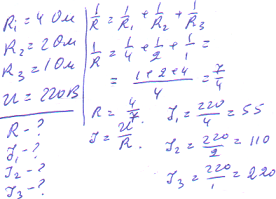 R₁ = 4 Ом
R₂ = 2 Ом
R₃ = 1 Ом
U = 220 В
R - ?
I₁ - ?
I₂ - ?
I₃ - ?
1/R = 1/R₁ + 1/R₂ + 1/R₃
1/R = 1/4 + 1/2 + 1/1 =
= (1+2+4)/4 = 7/4
R = 4/7
I = U/R.
I₁ = 220/4 = 55
I₂ = 220/2 = 110
I₃ = 220/1 = 220